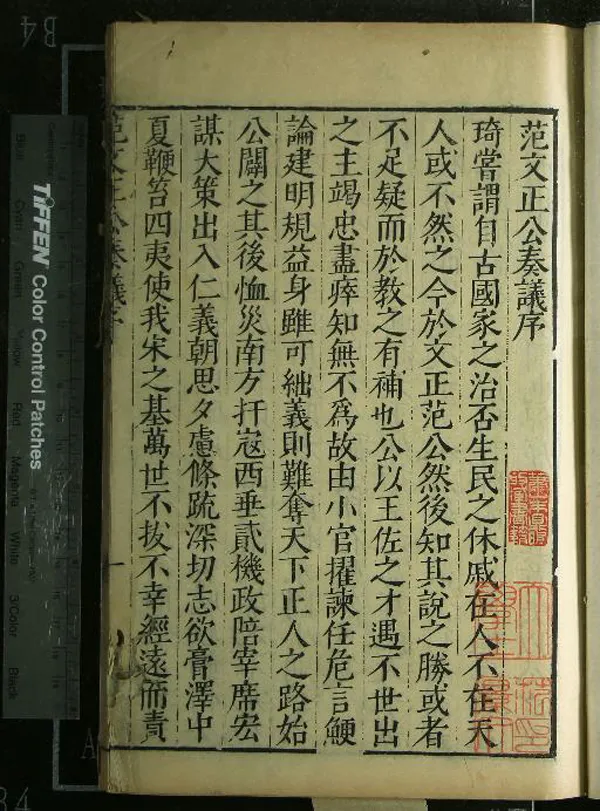 范文正公奏議序
琦嘗謂自古國家之治否生民之休戚在人不在天
人或不然之今於文正范公然後知其說之勝或者
不足疑而於教之有補也公以王佐之才遇不世出
之主竭忠盡瘁知無不爲故由小官擢諫任危言鯁
論建明規益身雖可絀義則難奪天下正人之路始
公闢之其後恤災南方扞寇西垂貳機政陪宰席宏
謀大策出入仁義朝思夕慮條疏深切志欲膏澤中
夏鞭笞四夷使我宋之基萬世不拔不幸經遠而責
范文正公奏議序
一
TIFFEN Color Control Patches
Blue
Cyan
Green
Yellow
Red
Magenta
White
3/Color
Black
B4
A